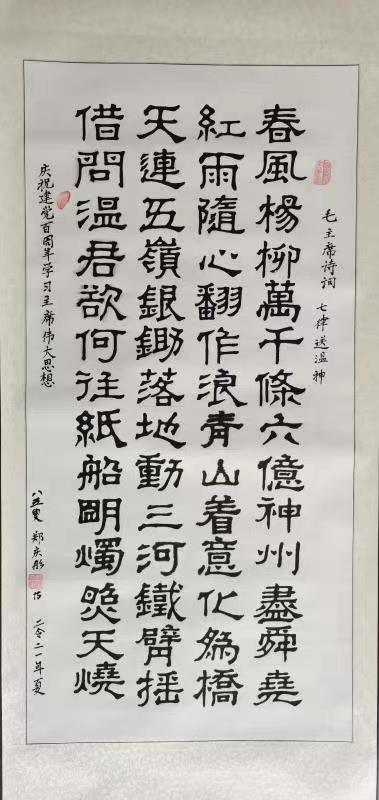 毛主席诗词 七律送温神
春風楊柳萬千條六億神州盡舜堯
紅雨隨心翻作浪青山着意化為橋
天連五嶺銀鋤落地動三河鐵臂摇
借問温君欲何往紙船明燭照天燒
庆祝建党百周年学习主席伟大思想
八五叟 郑庆彤 书 二零二一年夏